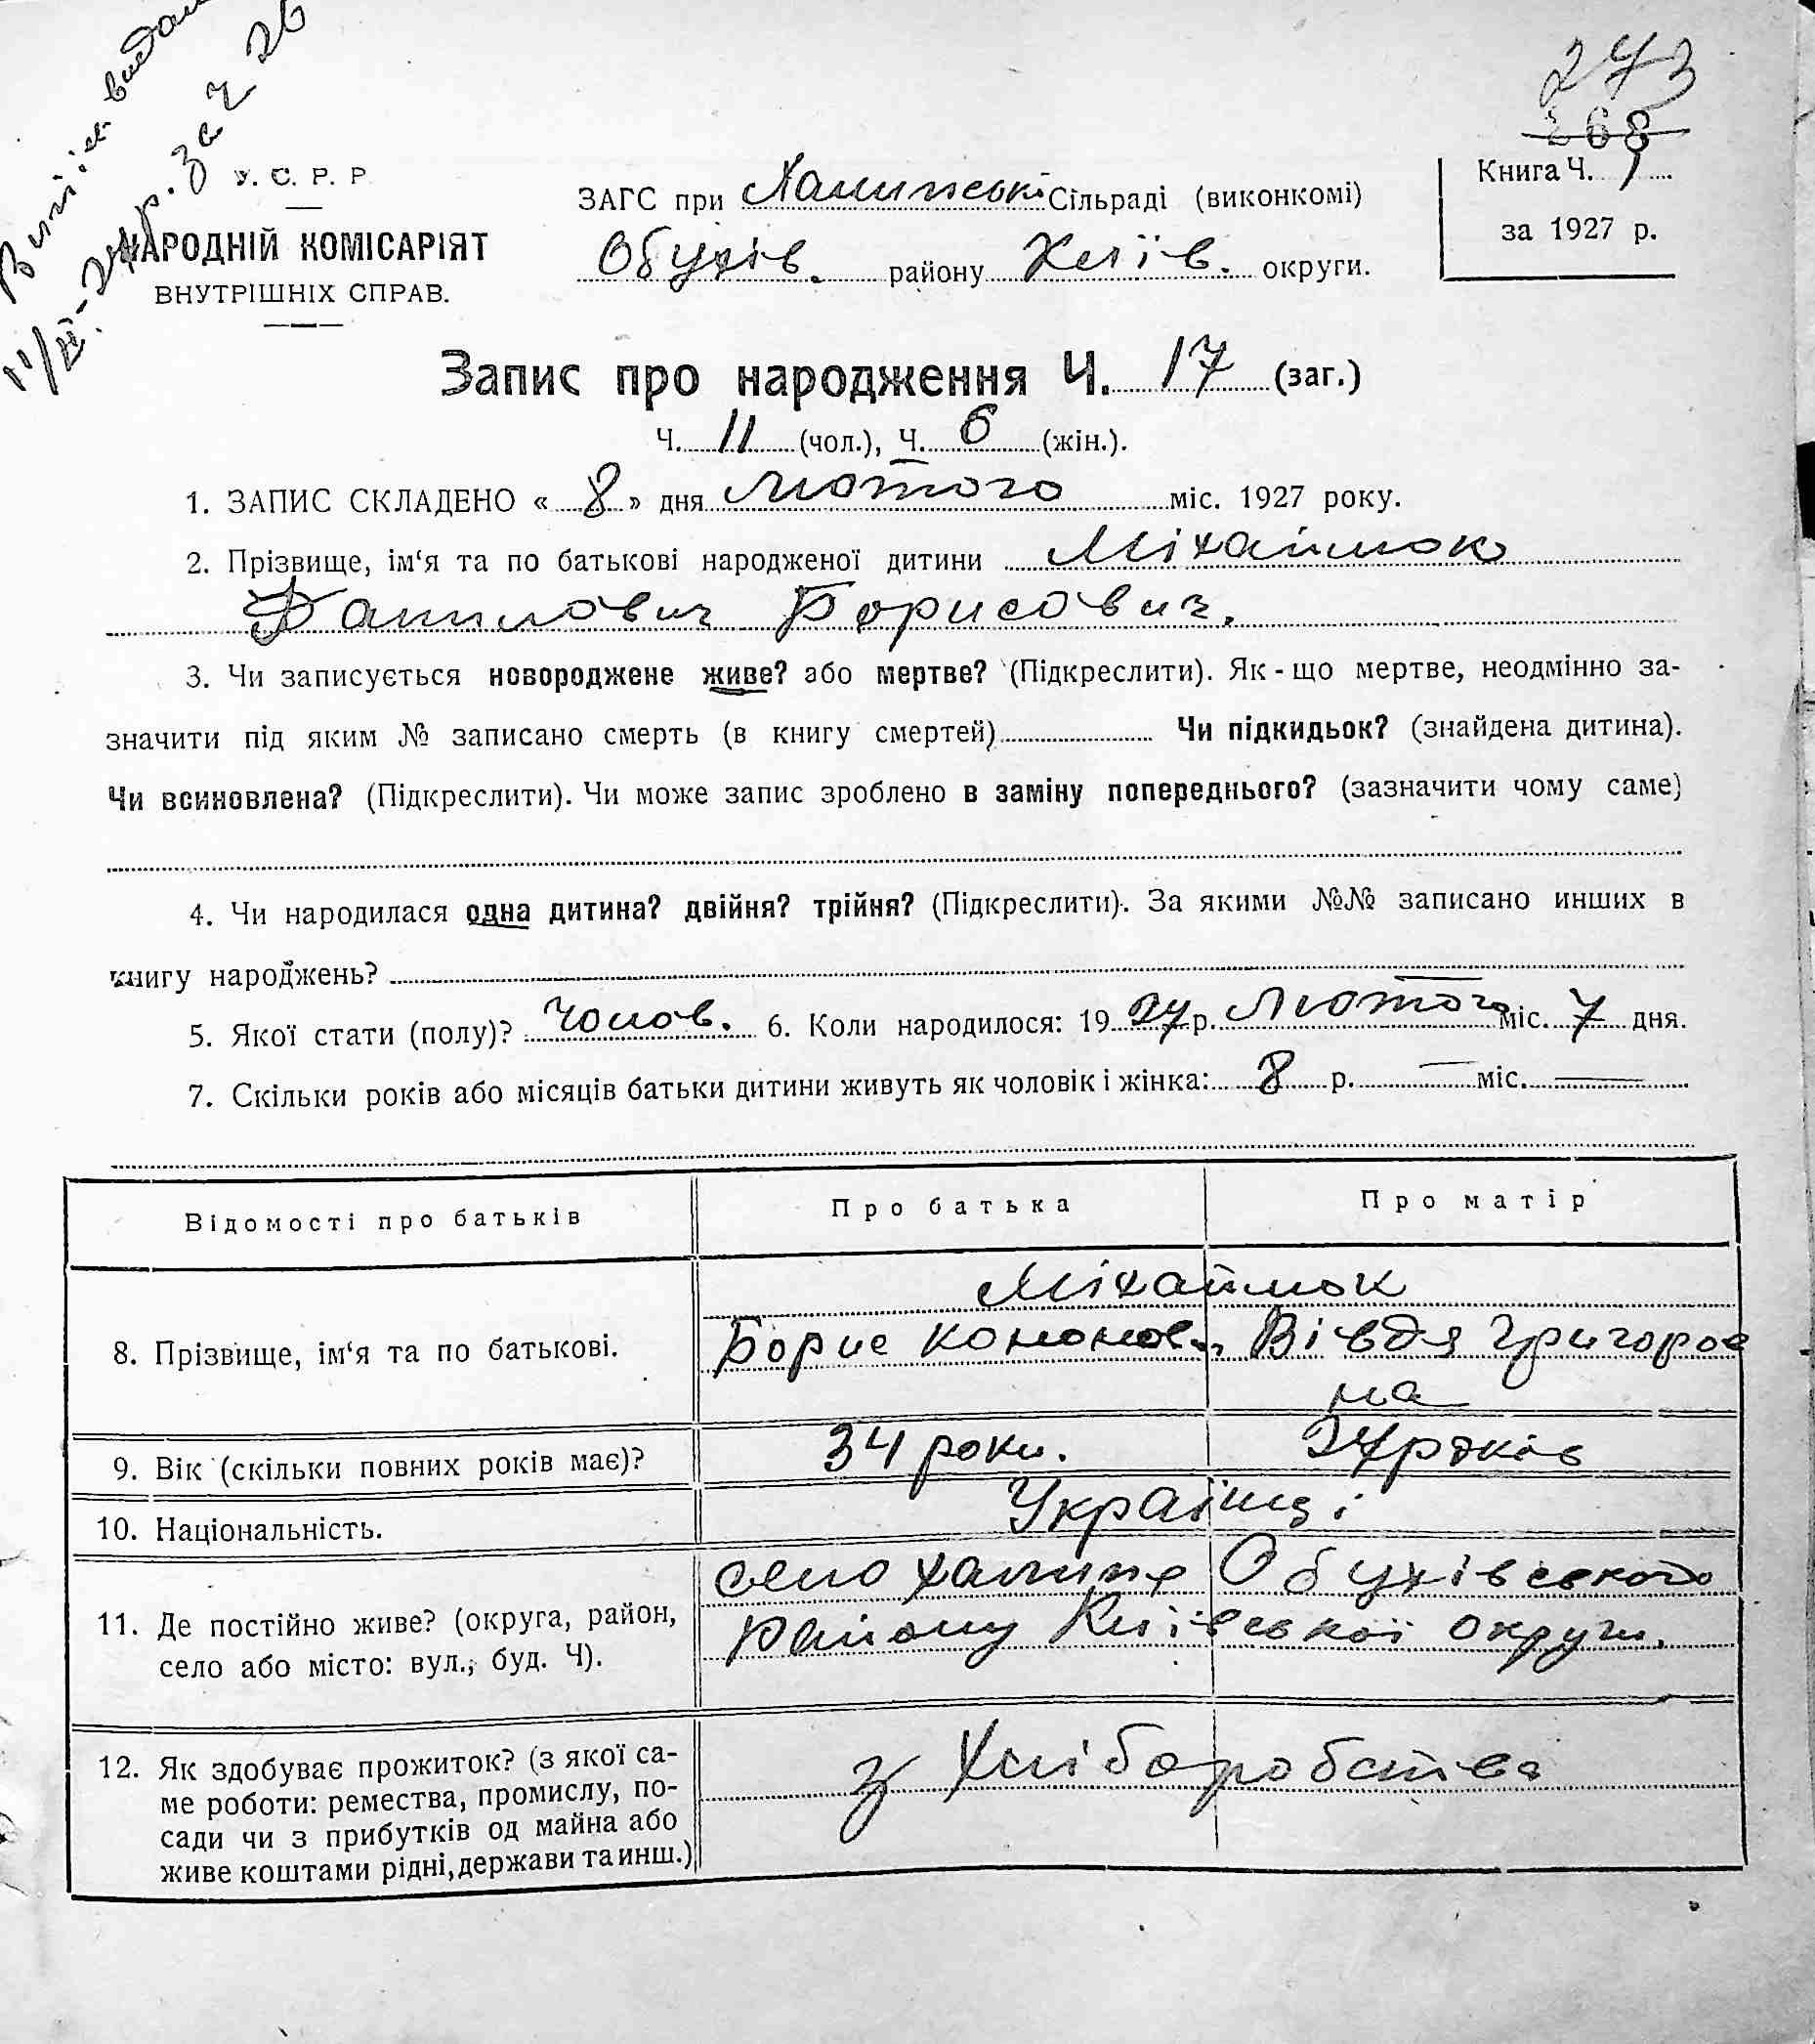 Витяг видано
11/III-27 р. за ч 26
273
268
У. С. Р. Р
НАРОДНІЙ КОМІСАРІЯТ
ВНУТРІШНІХ СПРАВ.
ЗАГС при Халипській Сільраді (виконкомі)
Обухів. району Київ. округи.
Книга Ч. 1
за 1927 р.
Запис про народження Ч. 17 (заг.)
Ч. 11 (чол.), Ч. 6 (жін.).
1. ЗАПИС СКЛАДЕНО « 8 » дня лютого міс. 1927 року.
2. Прізвище, ім‘я та по батькові народженої дитини Міхаймок
Данилович Борисович.
3. Чи записується новороджене живе? або мертве? (Підкреслити). Як-що мертве, неодмінно за-
значити під яким № записано смерть (в книгу смертей) Чи підкидьок? (знайдена дитина).
Чи всиновлена? (Підкреслити). Чи може запис зроблено в заміну попереднього? (зазначити чому саме)
4. Чи народилася одна дитина? двійня? трійня? (Підкреслити). За якими №№ записано инших в
книгу народжень?
5. Якої стати (полу)? Чолов. 6. Коли народилося: 19 27 р. Лютого міс. 7 дня.
7. Скільки років або місяців батьки дитини живуть як чоловік і жінка: 8 р. — міс. —
Відомості про батьків Про батька Про матір
Міхаймок
8. Прізвище, ім‘я та по батькові. Борис Кононов. Вівдя Григоров
на
9. Вік (скільки повних років має)? 34 роки. 27 років
10. Національність. Українці
село Халипя Обухівського
11. Де постійно живе? (округа, район, району Київської округи.
село або місто: вул., буд. Ч).
12. Як здобуває прожиток? (з якої са- з Хліборобства
ме роботи: ремества, промислу, по-
сади чи з прибутків од майна або
живе коштами рідні, держави та инш.)